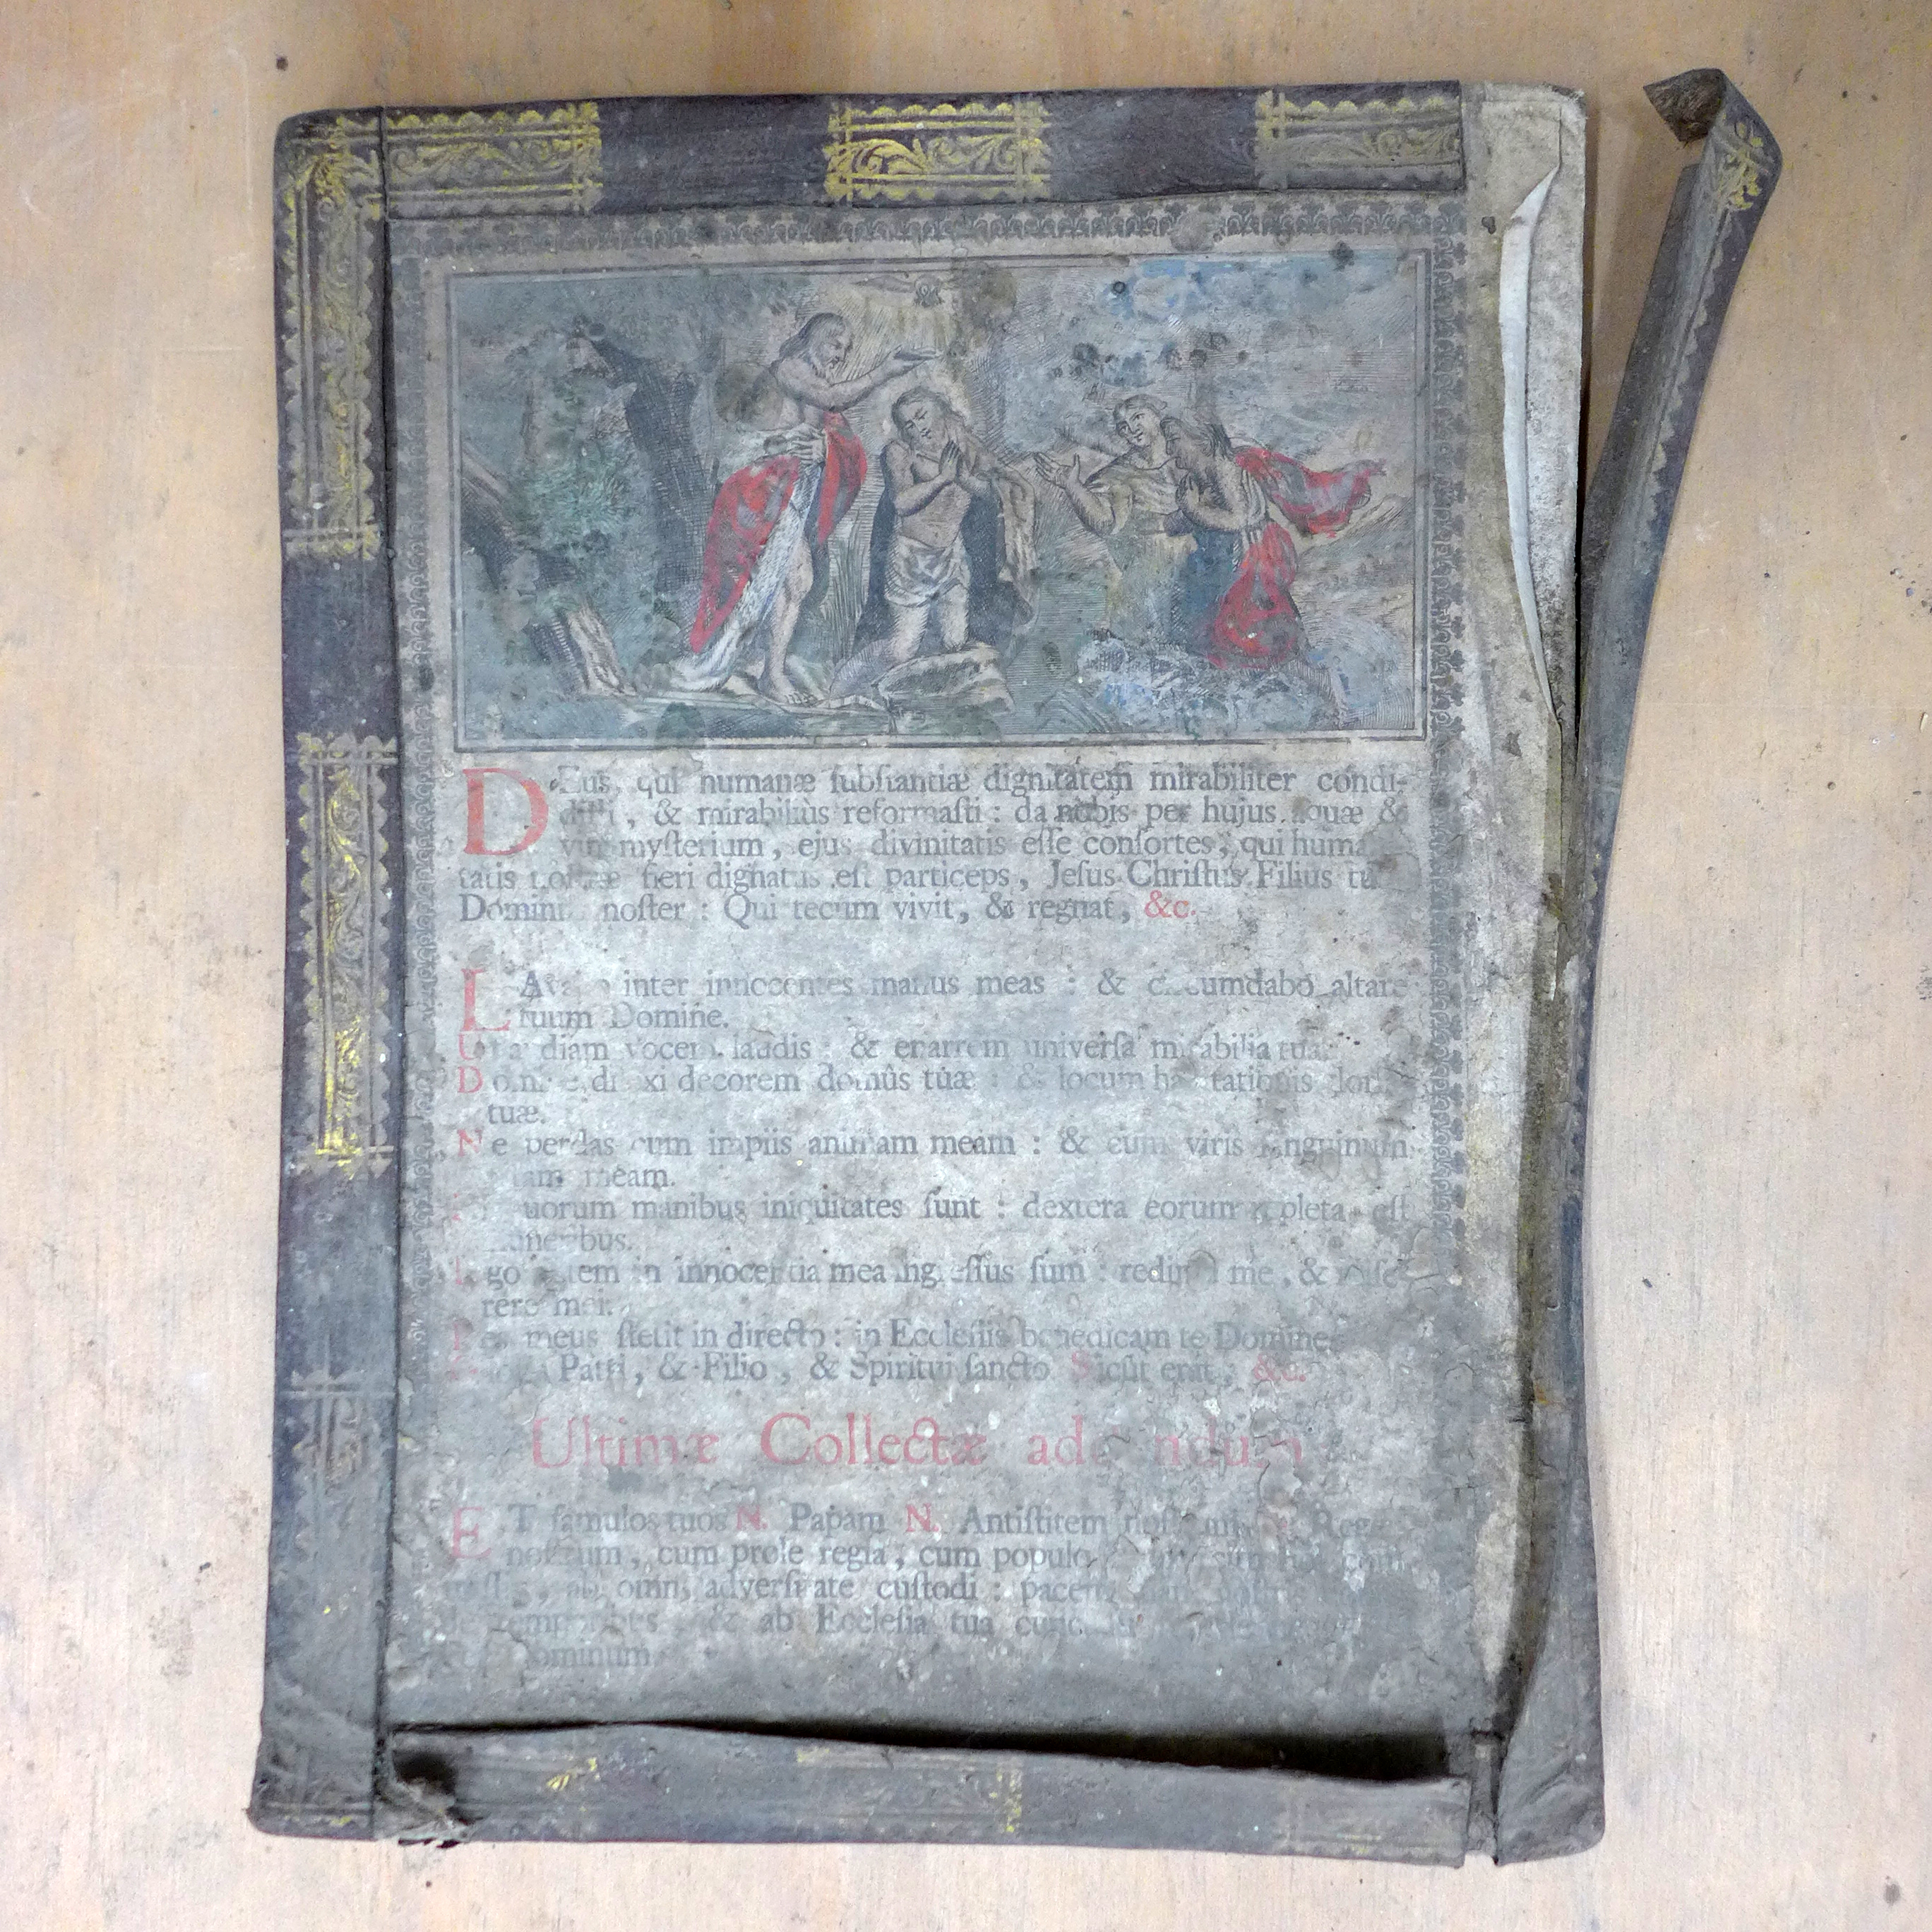 DEus, qui humanæ ſubſtantiæ dignitatem mirabiliter condi-
diſti, & mirabiliùs reformaſti : da nobis per hujus aquæ &
vini myſterium, ejus divinitatis eſſe conſortes, qui huma
tatis noſtræ fieri dignatus eſt particeps, Jeſus Chriſtus Filius tu
Dominus noſter : Qui tecum vivit, & regnat, &c.
LAvabo inter innocentes manus meas : & circumdabo altare
tuum Domine.
Ut audiam vocem laudis : & enarrem univerſa mirabilia tua.
Domine dilexi decorem domûs tuæ : & locum habitationis glor
tuæ.
Ne perdas cum impiis animam meam : & cum viris ſanguinum
vitam meam.
In quorum manibus iniquitates ſunt : dextera eorum repleta eſt
muneribus.
Ego autem in innocentia mea ingreſſus ſum : redime me, & miſe-
rere mei.
Pes meus ſtetit in directo : in Eccleſiis benedicam te Domine
Gloria Patri, & Filio, & Spiritui ſancto Sicut erat, &c.
Ultimæ Collectæ addendum
ET famulos tuos N. Papam N. Antiſtitem noſtrum Reg
noſtrum, cum prole regia, cum populo
ab omni adverſitate cuſtodi : pacem
temporibus & ab Eccleſia tua
Dominum